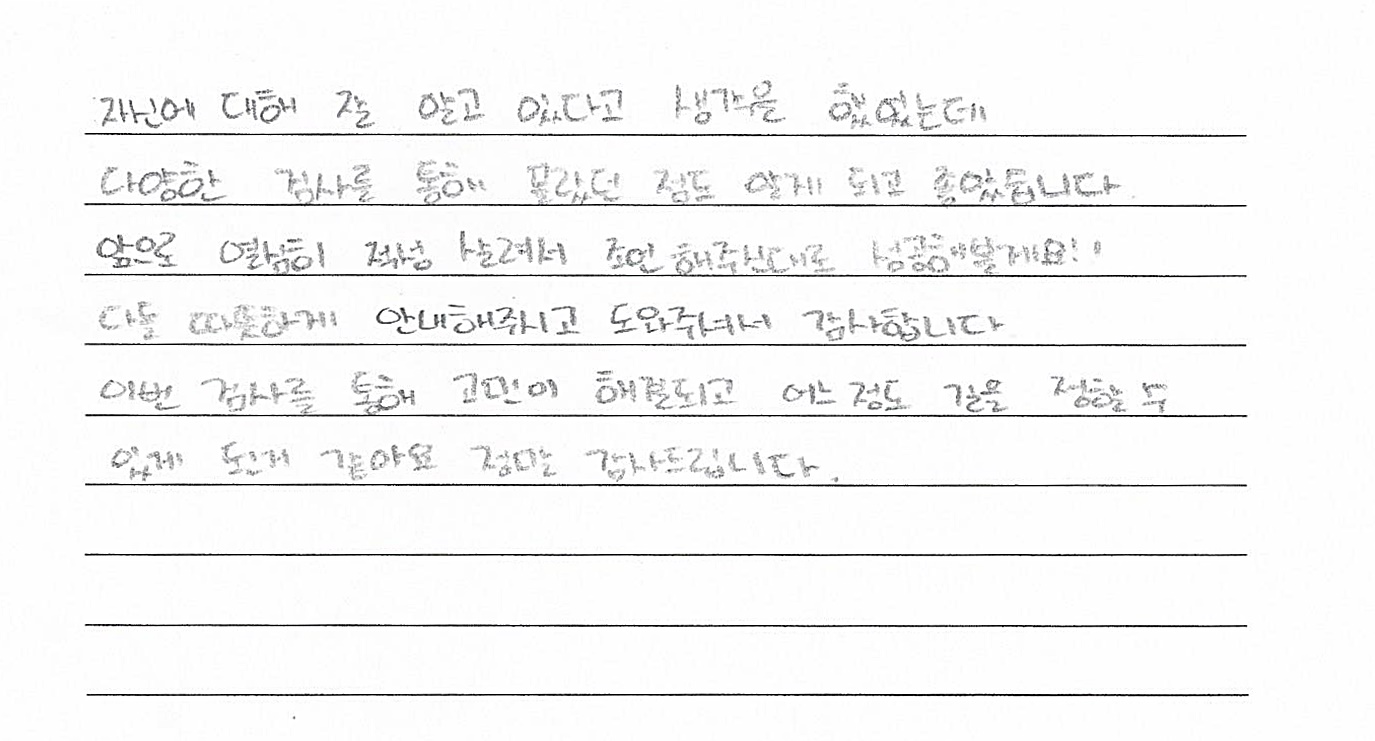 자신에 대해 잘 알고 있다고 생각을 했었는데
다양한 검사를 통해 몰랐던 점도 알게 되고 좋았습니다.
앞으로 열심히 적성 살려서 조언해주신대로 성공해볼게요!!
다들 따뜻하게 안내해주시고 도와주셔서 감사합니다
이번 검사를 통해 고민이 해결되고 어느정도 길을 정할 수
있게 된거 같아요 정말 감사드립니다.